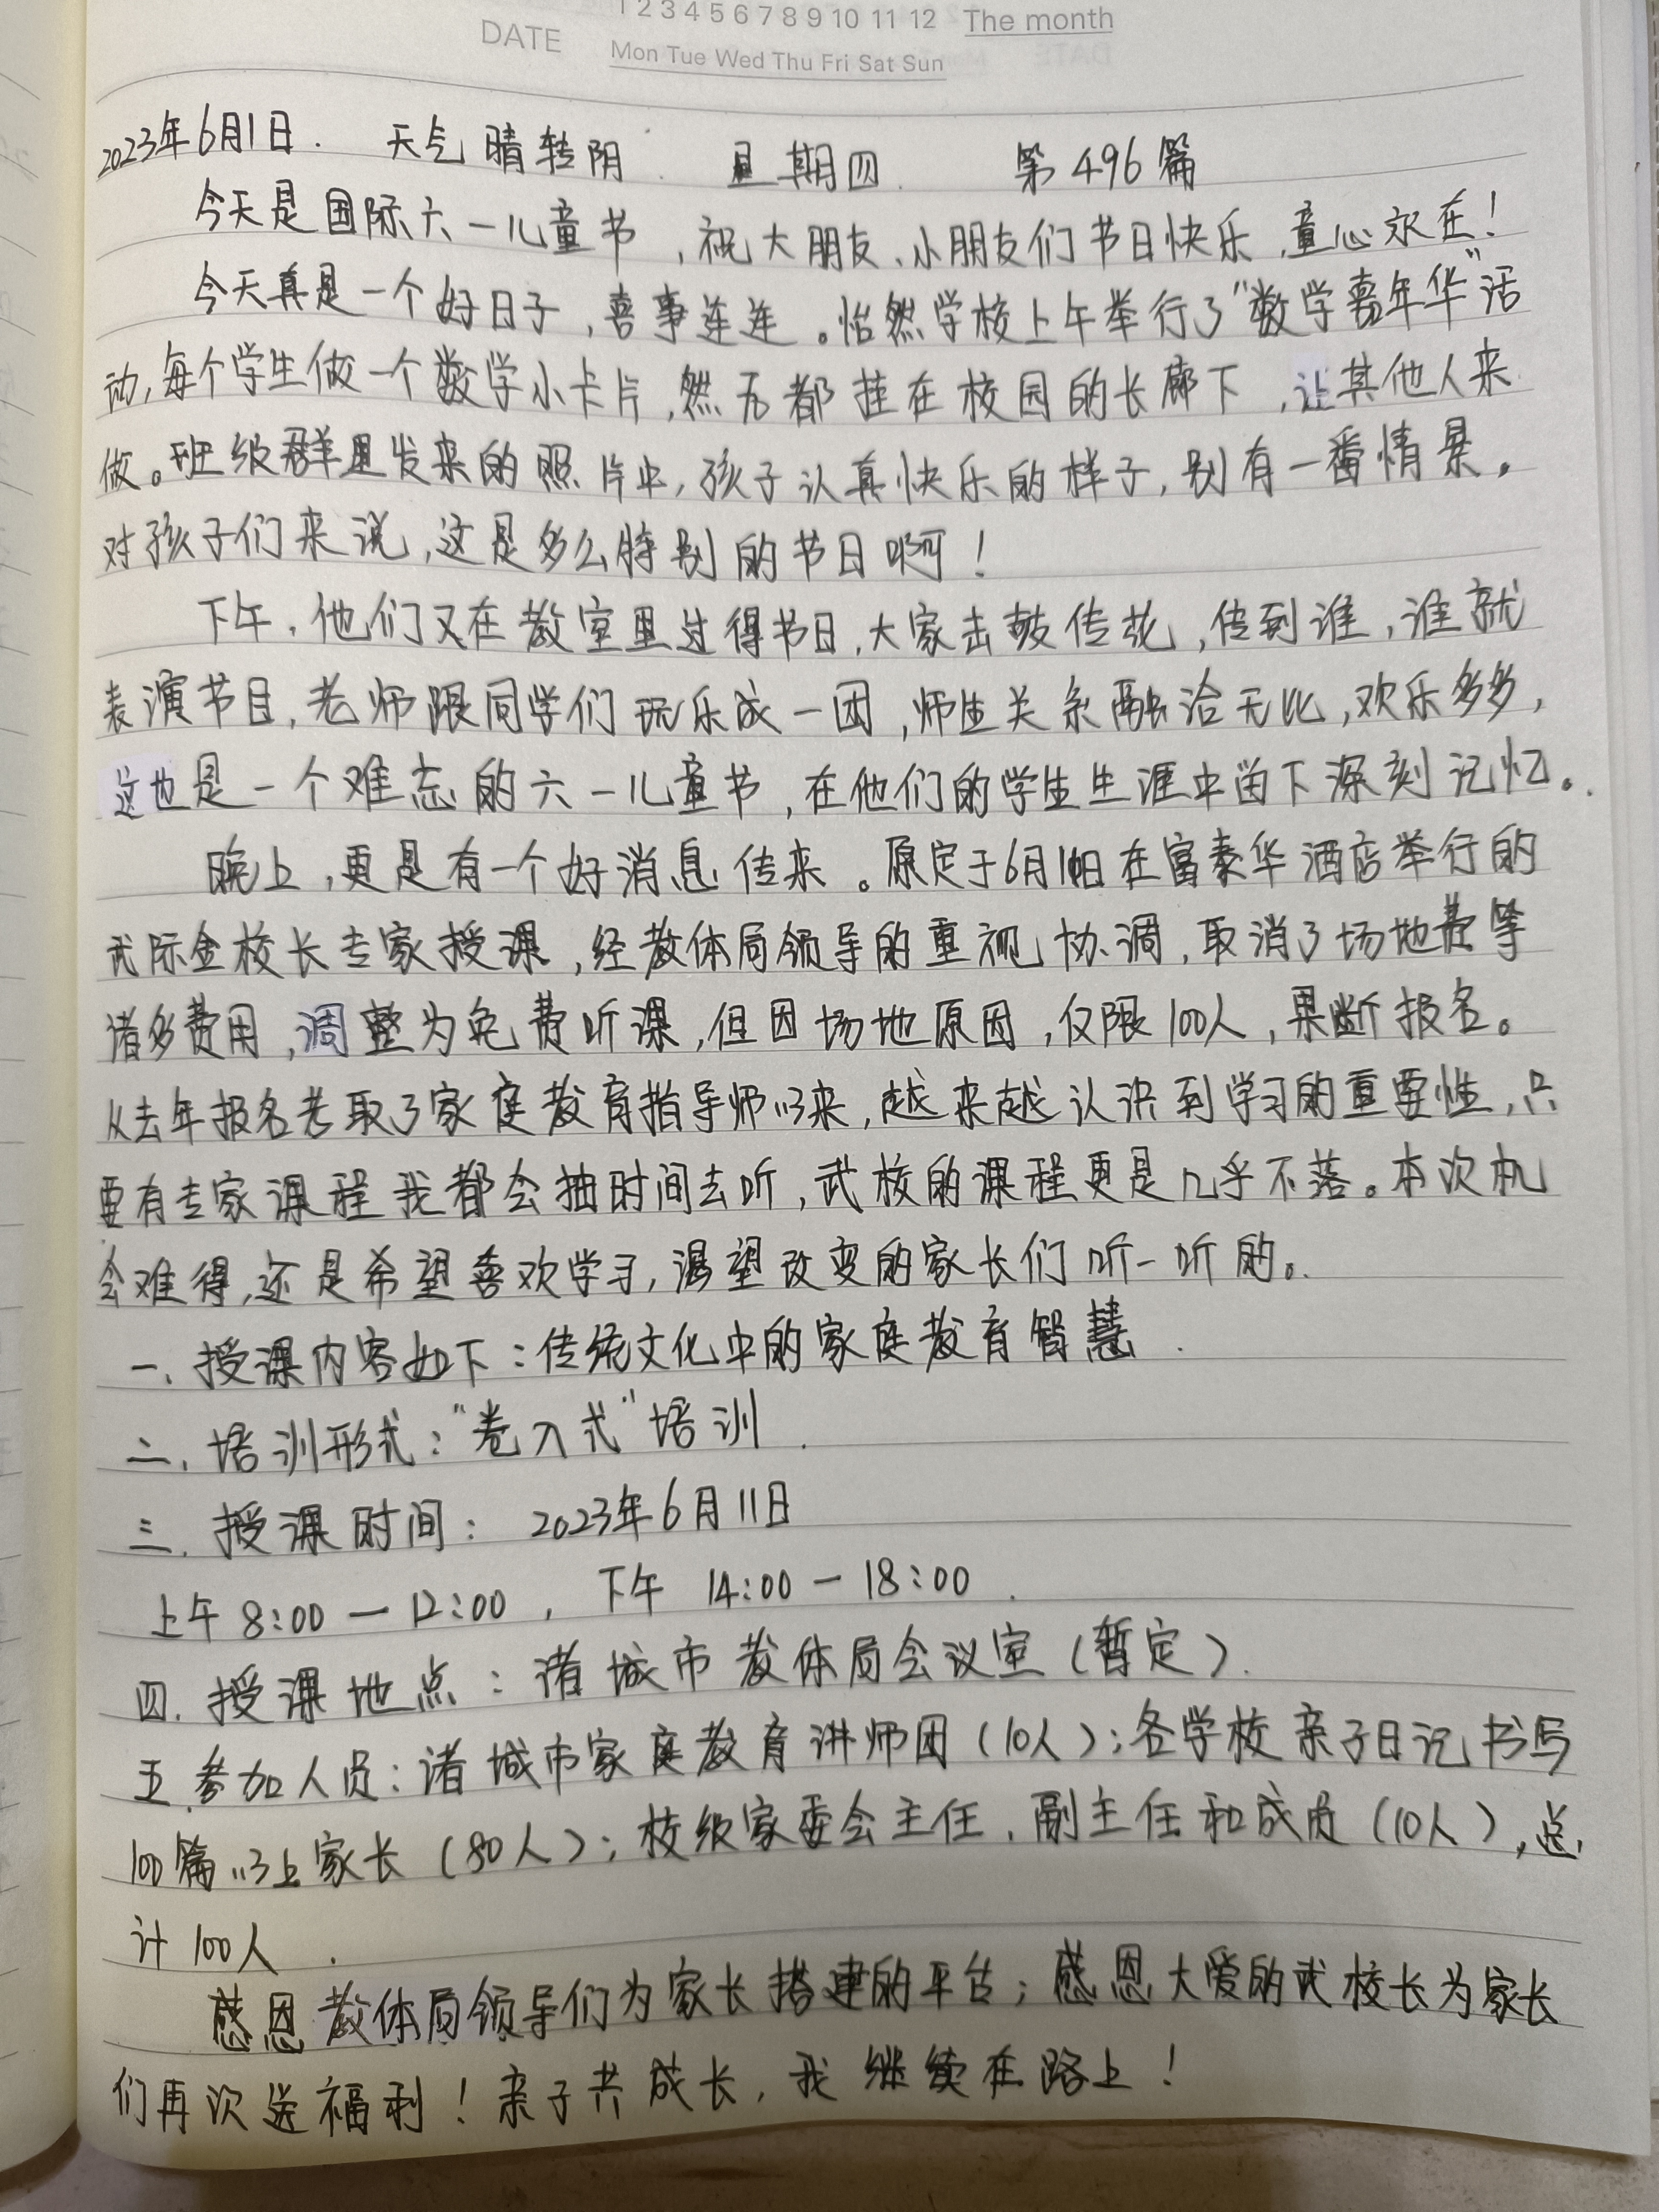 1 2 3 4 5 6 7 8 9 10 11 12 The month
DATE Mon Tue Wed Thu Fri Sat Sun
2023年6月1日. 天气 晴转阴 星期四 第496篇
今天是国际六一儿童节,祝大朋友、小朋友们节日快乐,童心永在!
今天真是一个好日子,喜事连连。怡然学校上午举行了“数学嘉年华”活
动,每个学生做一个数学小卡片,然后都挂在校园的长廊下,让其他人来
做。班级群里发来的照片中,孩子认真快乐的样子,别有一番情景。
对孩子们来说,这是多么特别的节日啊!
下午,他们又在教室里过得节日,大家击鼓传花,传到谁,谁就
表演节目,老师跟同学们玩乐成一团,师生关系融洽无比,欢乐多多,
这也是一个难忘的六一儿童节,在他们的学生生涯中留下深刻记忆。
晚上,更是有一个好消息传来。原定于6月10日在富泰华酒店举行的
武际金校长专家授课,经教体局领导的重视协调,取消了场地费等
诸多费用,调整为免费听课,但因场地原因,仅限100人,果断报名。
从去年报名考取了家庭教育指导师以来,越来越认识到学习的重要性,只
要有专家课程我都会抽时间去听,武校的课程更是几乎不落。本次机
会难得,还是希望喜欢学习,渴望改变的家长们听一听的。
一、授课内容如下:传统文化中的家庭教育智慧.
二、培训形式:“卷入式”培训.
三、授课时间: 2023年6月11日
上午8:00—12:00, 下午 14:00—18:00.
四、授课地点:诸城市教体局会议室(暂定).
五、参加人员:诸城市家庭教育讲师团(10人);各学校亲子日记书写
100篇以上家长(80人);校级家委会主任、副主任和成员(10人),总
计100人.
感恩教体局领导们为家长搭建的平台;感恩大爱的武校长为家长
们再次送福利!亲子共成长,我继续在路上!